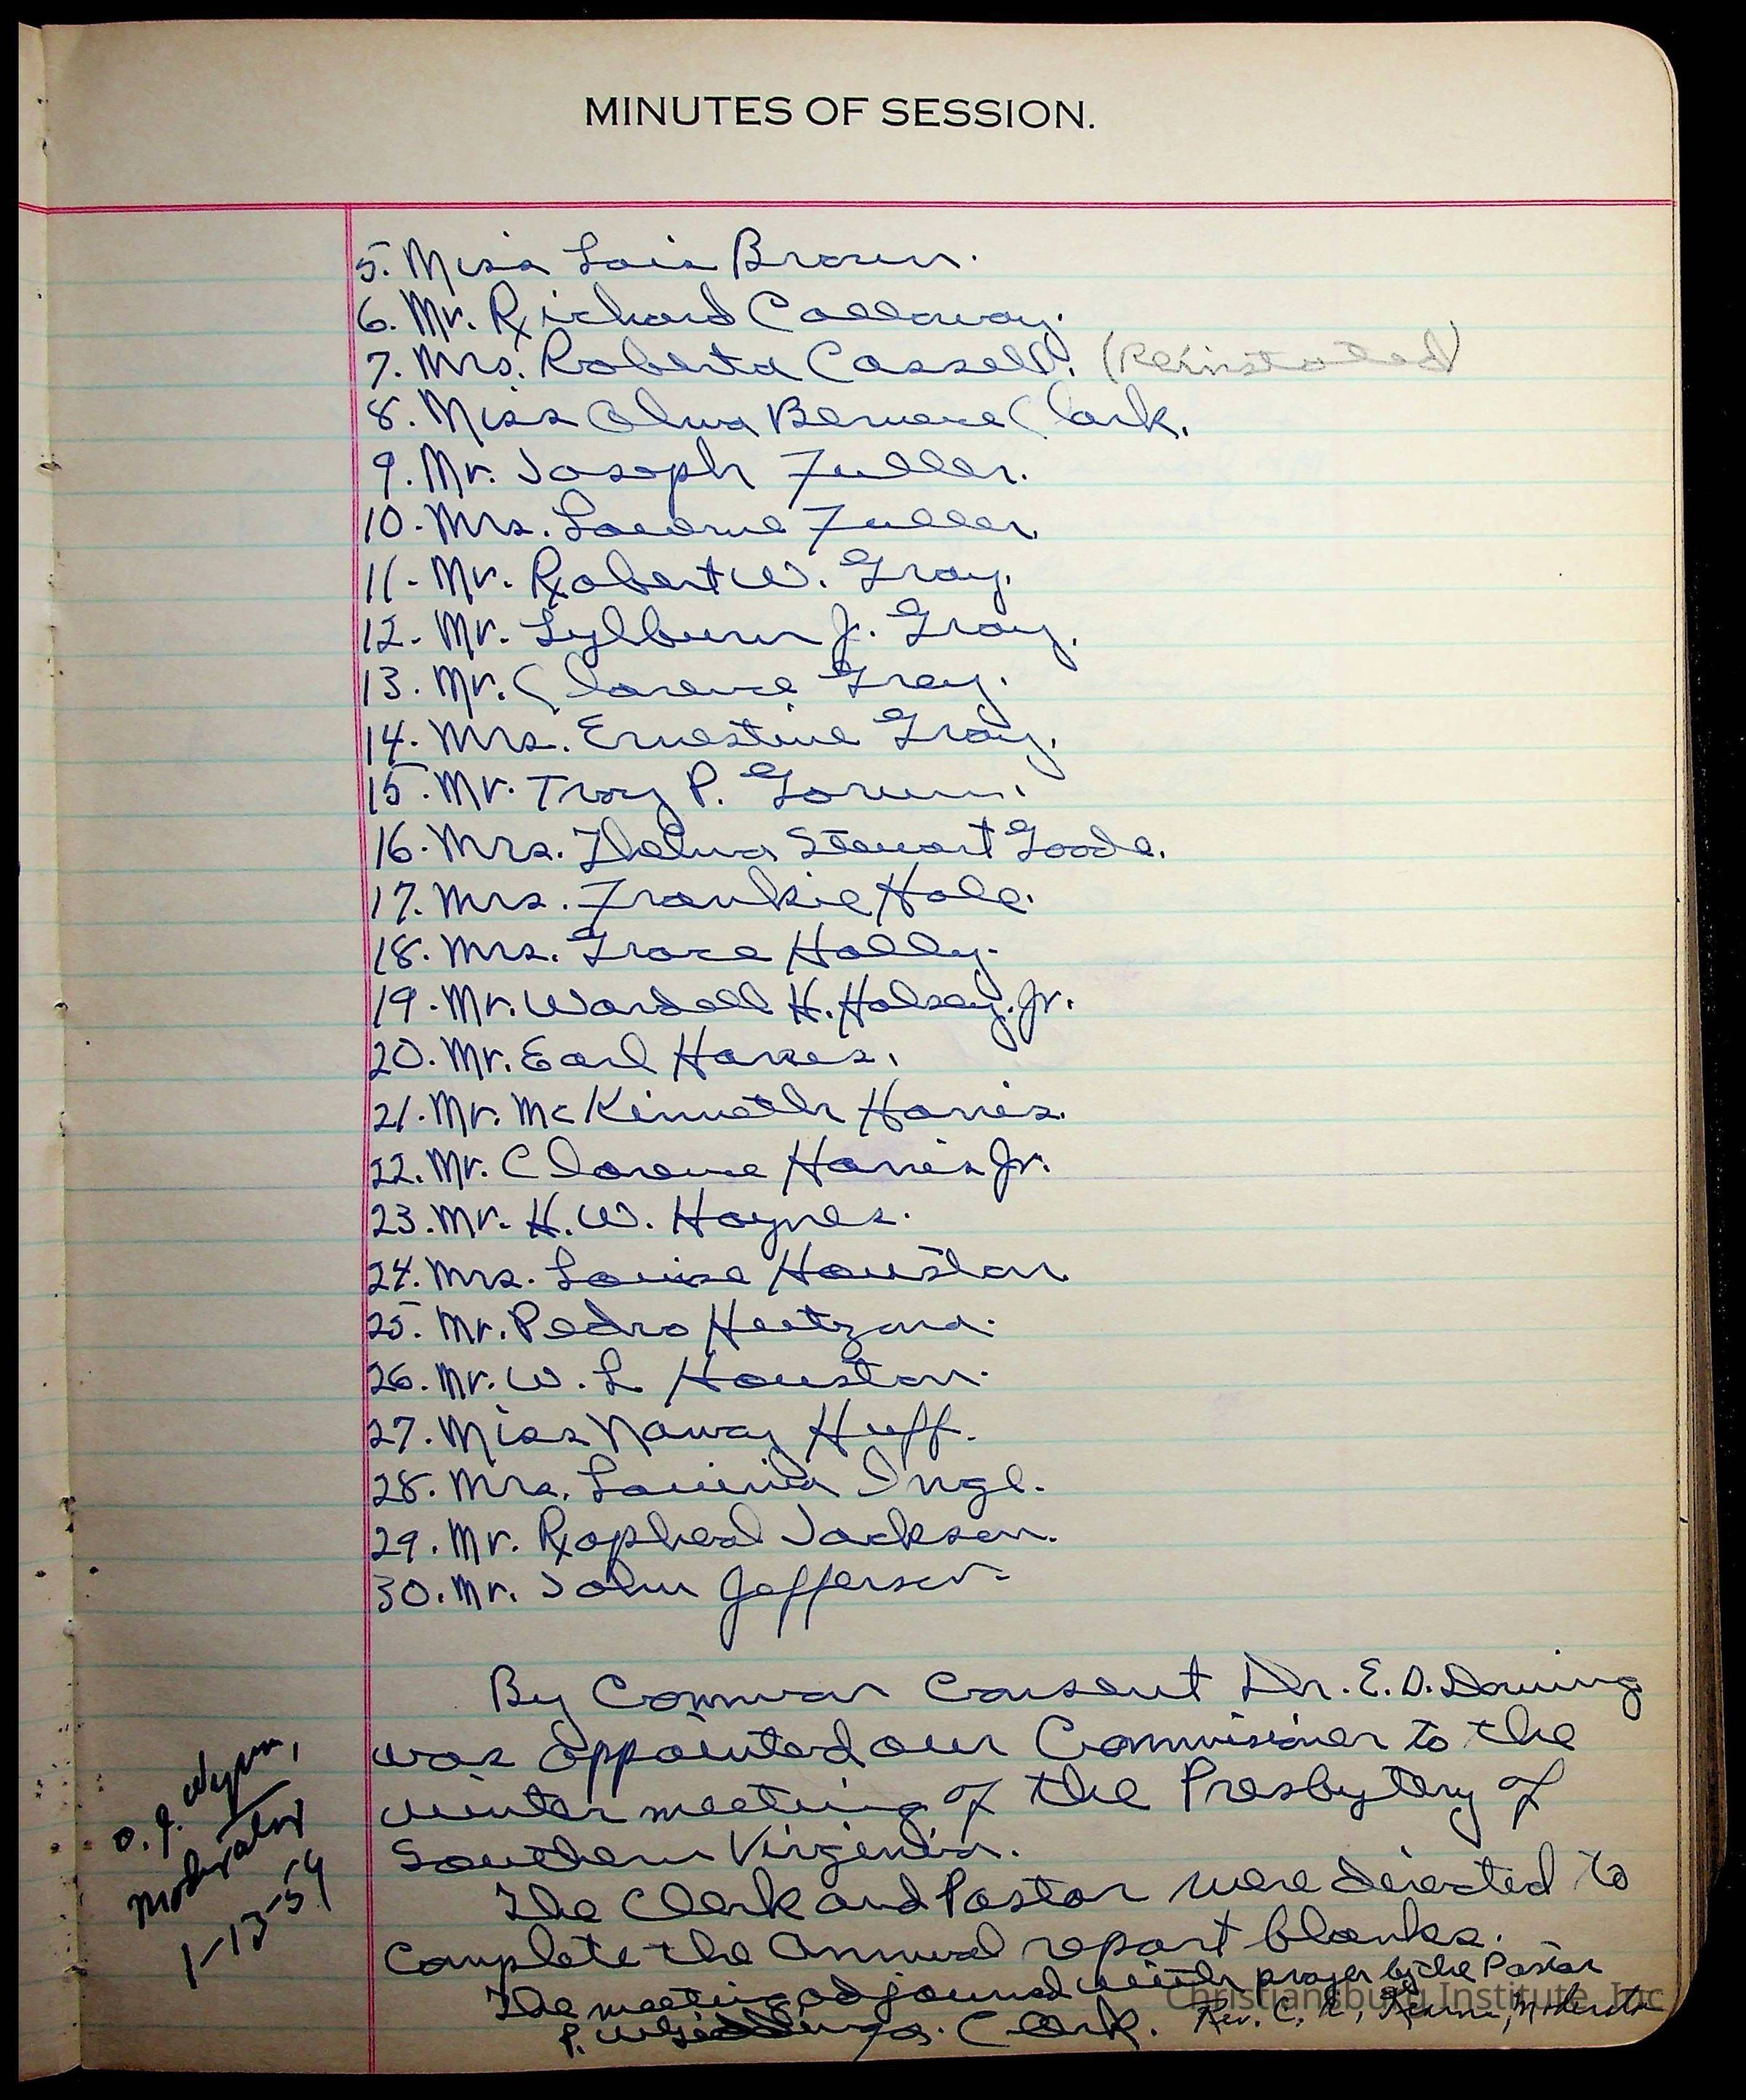 MINUTES OF SESSION.
5. Miss Lois Brown.
6. Mr. Richard Calloway.
7. Mrs. Roberta Cassell. (Reinstated)
8. Miss Alma Bernice Clark.
9. Mr. Joseph Fuller.
10. Mrs. Fuller.
11. Mr. Robert W. Gray.
12. Mr. Lylburn J. Gray.
13. Mr. Clarence Gray.
14. Mrs. Ernestine Gray.
15. Mr. Troy P.
16. Mrs. Thelma Stewart Goode.
17. Mrs. Frankie Hale.
18. Mrs. Grace Holly.
19. Mr. Wardell H. Halsey. Jr.
20. Mr. Earl
21. Mr. McKinneth Harris.
22. Mr. Clarence Harris Jr.
23. Mr. H. W. Haynes.
24. Mrs. Louise Houston
25. Mr. Pedro
26. Mr. W. L Houston.
27. Miss Nancy Huff.
28. Mrs. Lavinia Inge.
29. Mr. Rapheal Jackson.
30. Mr. John Jefferson.
By Common Consent Dr. E. D. Downing
was appointed our Commissioner to the
winter meeting of the Presbytery of
Southern Virginia.
The Clerk and Pastor were directed to
Complete the Annual report blanks.
The meeting adjourned with prayer by the Pastor
P. W. Giddings. Clerk. Rev. C. R. Moderator
O. J. Wynn,
Moderator
1-13-59
Christiansburg Institute, Inc